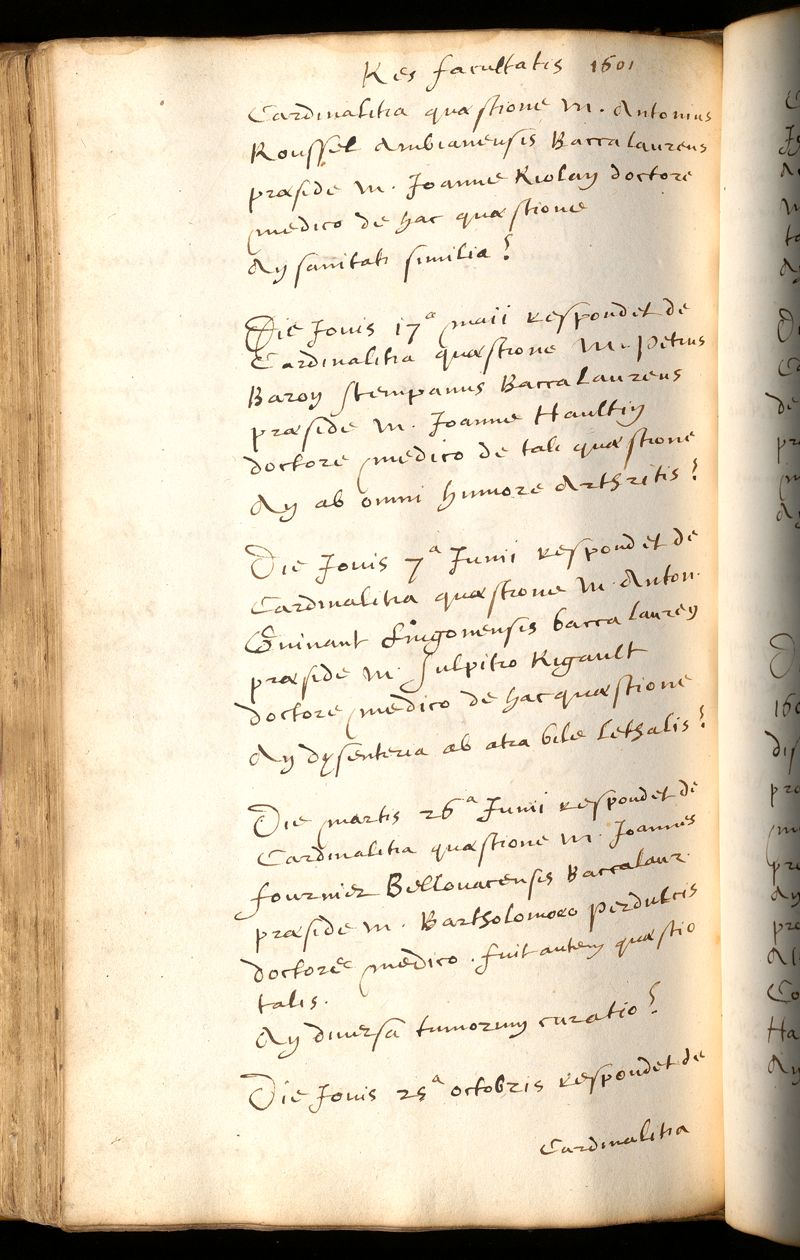 Res facultatis 1601
Cardinalitia quæstione M. Antonius
Roussel Ambianensis Baccalaureus
præside M. Joanne Riolan doctore
medico de hac quæstione
An sanitati similia?
Die Jovis 17ᵃ maii respondet de
Cardinalitia quæstione M. Petrus
Baron stempanus Baccalaureus
præside M. Joanne Haultin
doctore medico de tali quæstione
An ab omni humore Arthritis?
Die Jovis 7ᵃ Junii respondet de
Cardinalitia quæstione M. Anton.
Guinant Lingonensis baccalaureu
præside M. Sulpitio Rigault
doctore medico de hac quæstione
An dysenteria ab atra bile lethalis?
Die martis 26ᵃ Junii respondet de
Cardinalitia quæstione M. Joannes
fournier Bellovacensis Baccalaur.
præside M. Bartholomæo Perdulcis
doctore medico. fuit autem quæstio
talis.
An diversa tumorum curatio?
Die Jovis 25ᵃ octobris respondet de
Cardinalitia